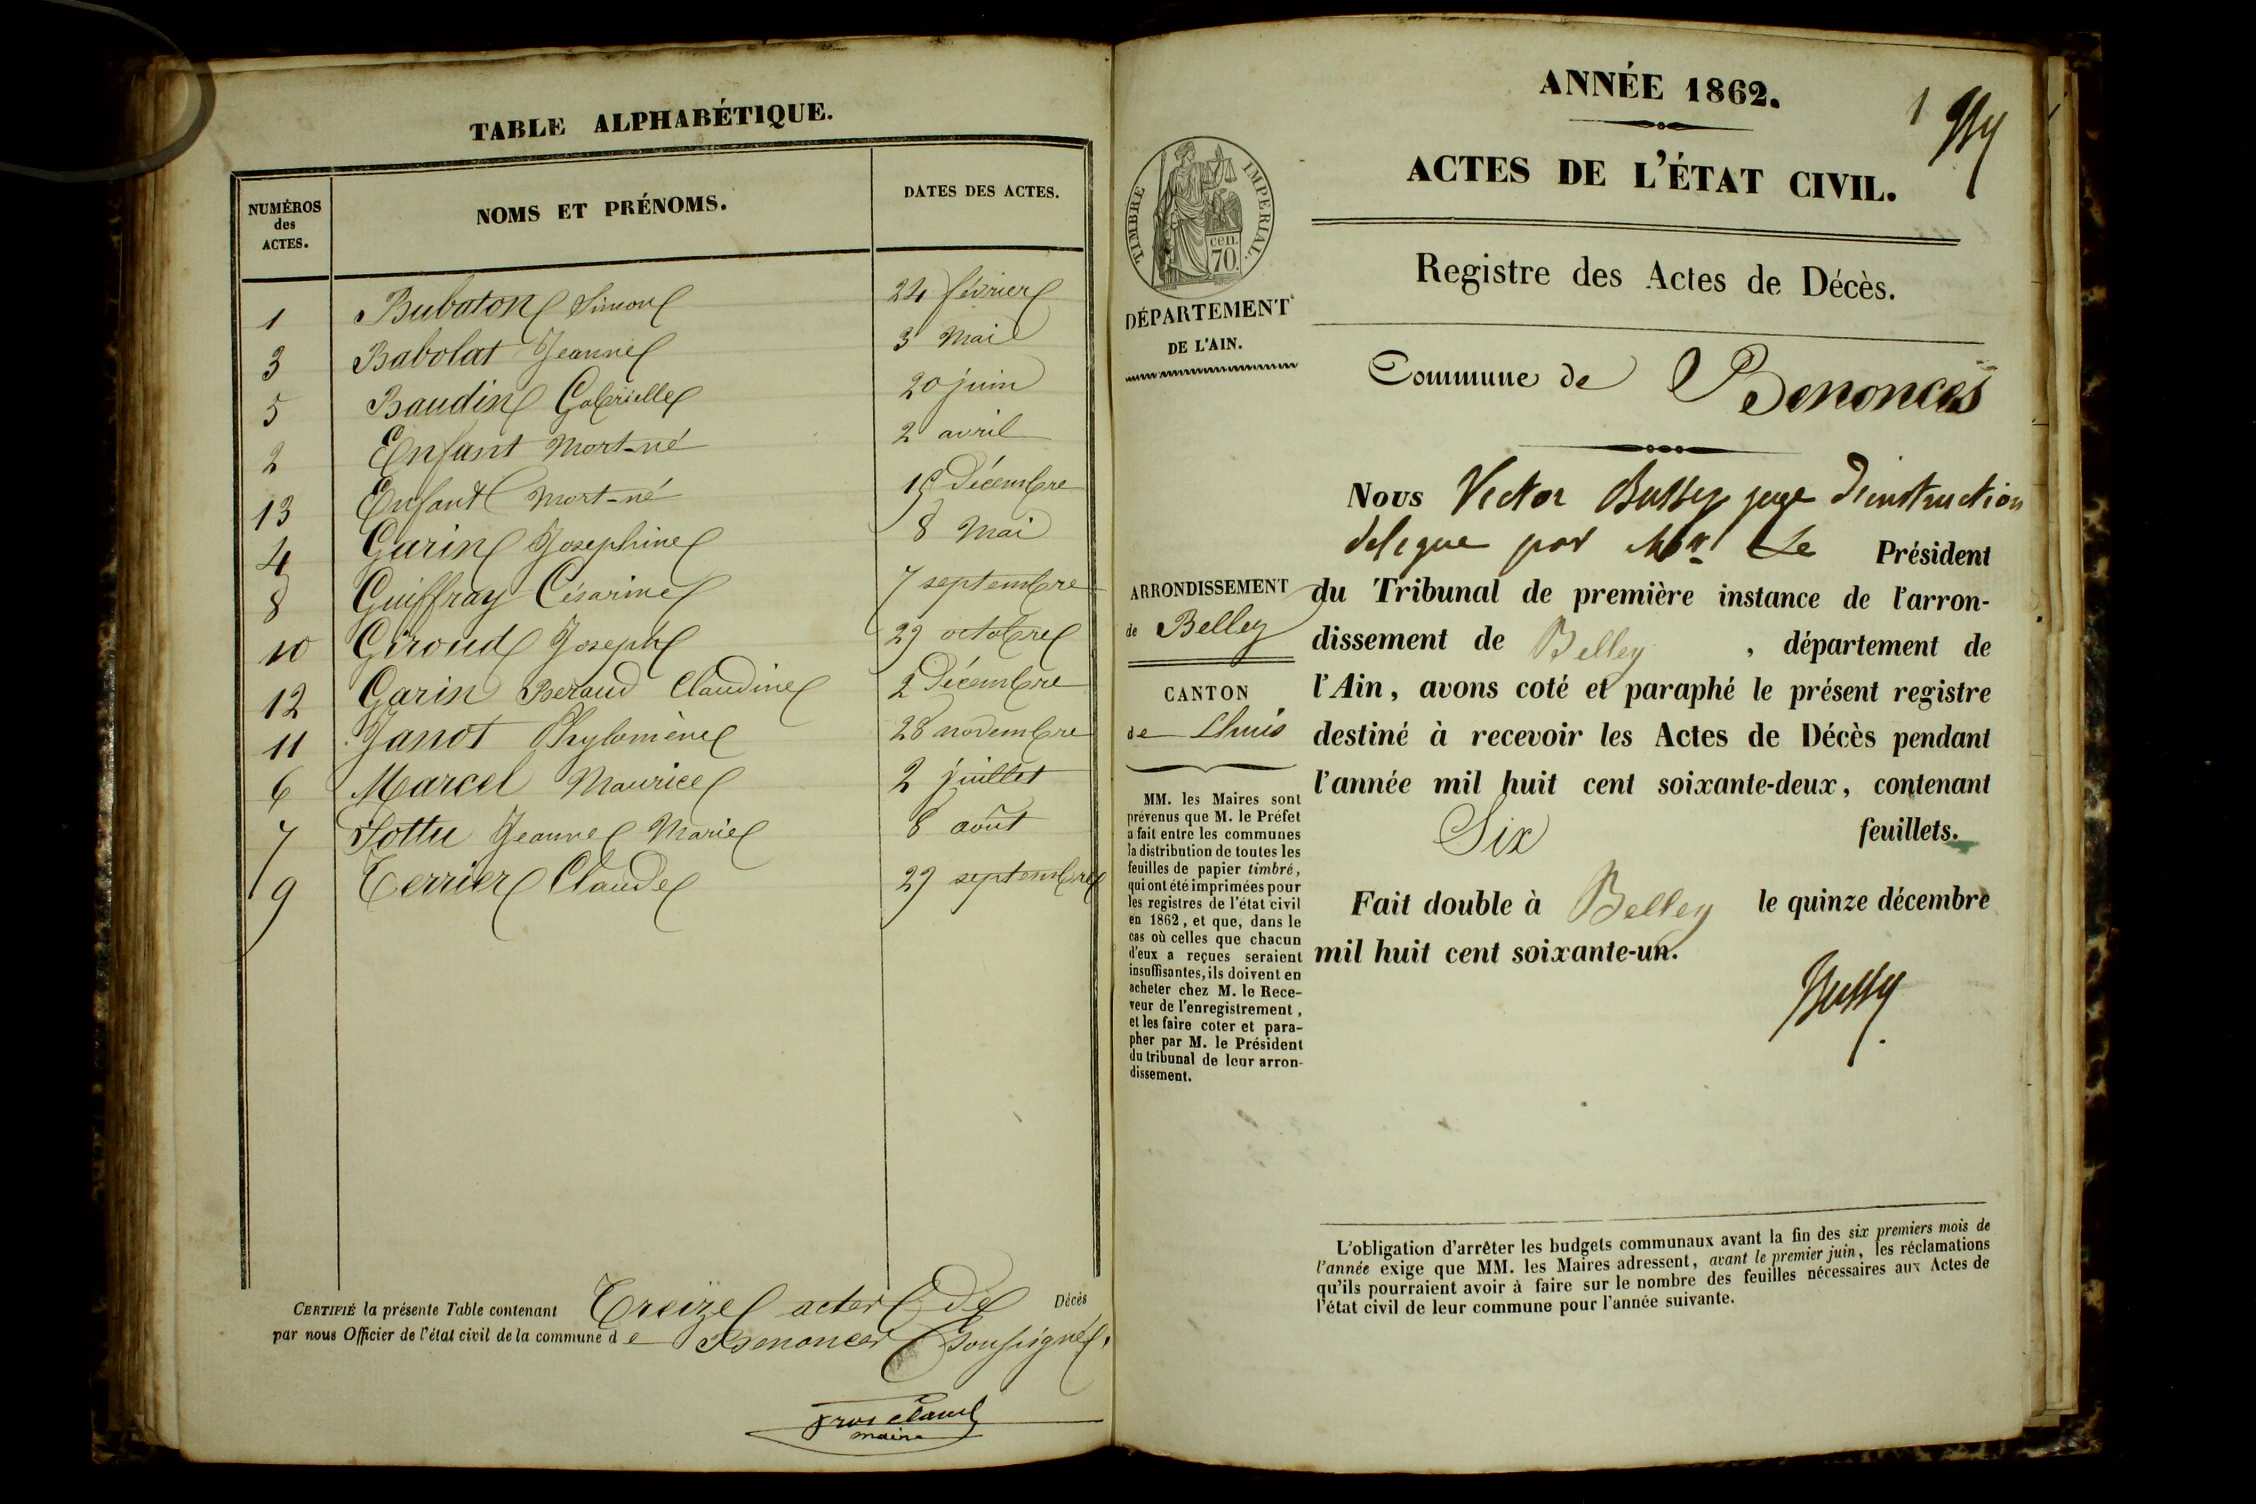 TABLE ALPHABÉTIQUE.
NUMÉROS des ACTES. NOMS ET PRÉNOMS. DATES DES ACTES.
1 Bubaton Simon 24 février
3 Babolat Jeanne 3 Mai
5 Baudin Gabrielle 20 juin
2 Enfant Mort-né 2 avril
13 Enfant Mort-né Décembre
4 Garin Josephine 8 Mai
8 Guiffray Césarine 7 septembre
10 Giroud Joseph 29 octobre
12 Garin Beraud Claudine 2 Décembre
11 Janot Phylomène 28 novembre
6 Marcel Maurice 2 juillet
7 Sottu Jeanne Marie 8 août
9 Terrier Claude 29 septembre
CERTIFIÉ la présente Table contenant Treize actes de Décès
par nous Officier de l'état civil de la commune de Benonces Soussigné.
maire
ANNÉE 1862.
1
ACTES DE L'ÉTAT CIVIL.
TIMBRE IMPERIAL.
cen.
70
Registre des Actes de Décès.
DÉPARTEMENT
DE L'AIN.
Commune de Benonces
Nous Victor Bussy juge d'instruction
delegue par Mr. Le Président
du Tribunal de première instance de l'arron-
dissement de Belley , département de
l'Ain, avons coté et paraphé le présent registre
destiné à recevoir les Actes de Décès pendant
l'année mil huit cent soixante-deux, contenant
Six feuillets.
Fait double à Belley le quinze décembre
mil huit cent soixante-un.
Bussy
ARRONDISSEMENT
de Belley
CANTON
de Lhuis
MM. les Maires sont
prévenus que M. le Préfet
a fait entre les communes
la distribution de toutes les
feuilles de papier timbré,
qui ont été imprimées pour
les registres de l'état civil
en 1862, et que, dans le
cas où celles que chacun
d'eux a reçues seraient
insuffisantes, ils doivent en
acheter chez M. le Rece-
veur de l'enregistrement,
et les faire coter et para-
pher par M. le Président
du tribunal de leur arron-
dissement.
L'obligation d'arrêter les budgets communaux avant la fin des six premiers mois de
l'année exige que MM. les Maires adressent, avant le premier juin, les réclamations
qu'ils pourraient avoir à faire sur le nombre des feuilles nécessaires aux Actes de
l'état civil de leur commune pour l'année suivante.